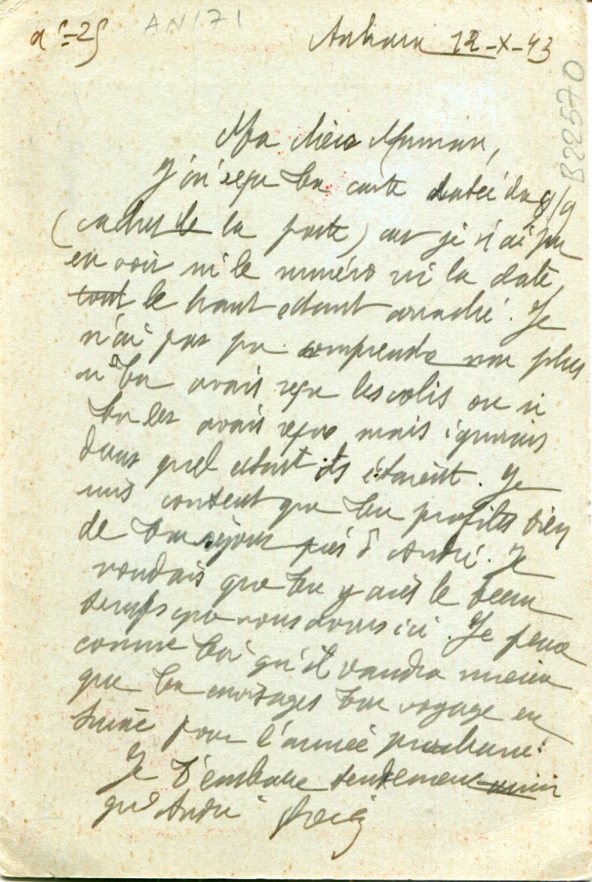 n°=25 AN171 Ankara 12-X-43
B22570
Ma chère Maman,
J'ai reçu ta carte datée du 8/9
(cachet de la poste) car je n'ai pu
en voir ni le numéro ni la date,
tout le haut étant arraché. Je
n'ai pas pu comprendre non plus
si tu avais reçu les colis ou si
tu les avais reçus mais ignorais
dans quel état ils étaient. Je
suis content que tu profites bien
de ton séjour près d'André. Je
voudrais que tu y aies le beau
temps que nous avons ici. Je pense
comme toi qu'il vaudra mieux
que tu envisages ton voyage en
Suisse pour l'année prochaine.
Je t'embrasse tendrement ainsi
qu'André